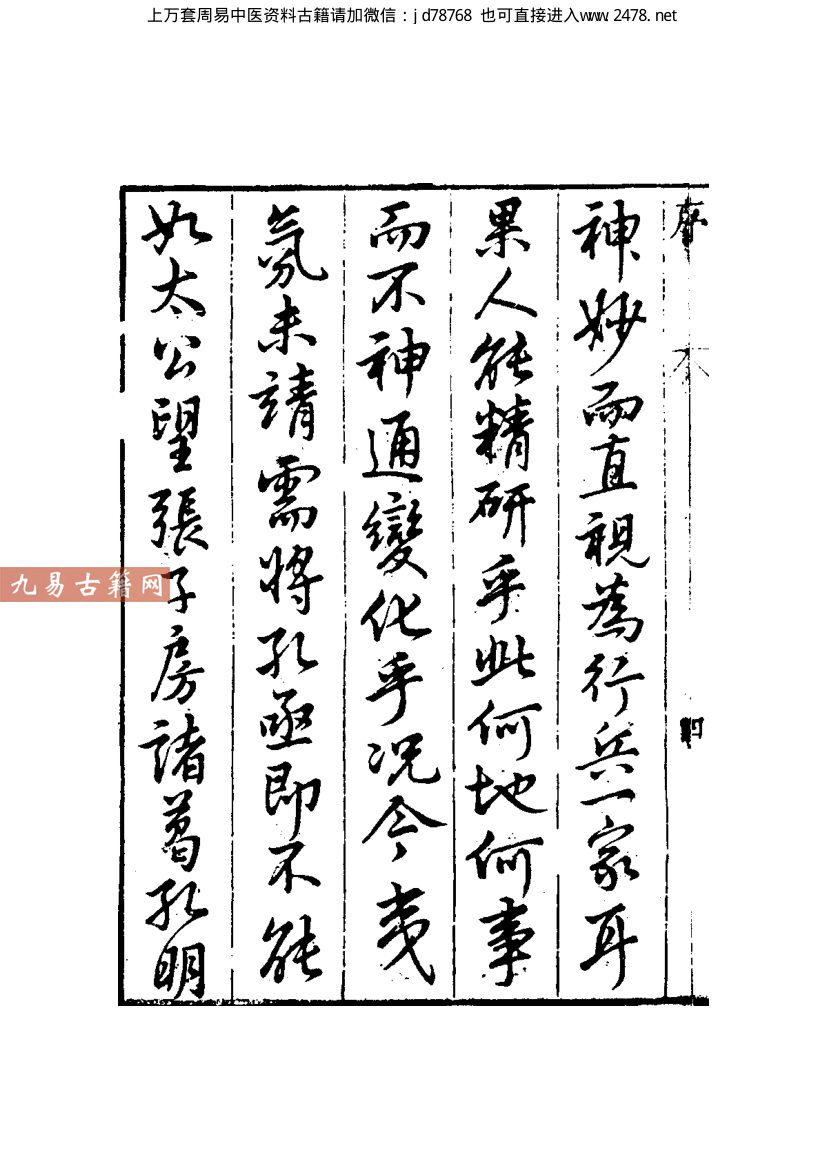 上万套周易中医资料古籍请加微信：jd78768 也可直接进入www.2478.net
四
神妙而直視為行兵一家耳
果人能精研乎此何地何事
而不神通變化乎况今夷
氛未靖需將孔亟即不能
如太公望張子房諸葛孔明
九易古籍网